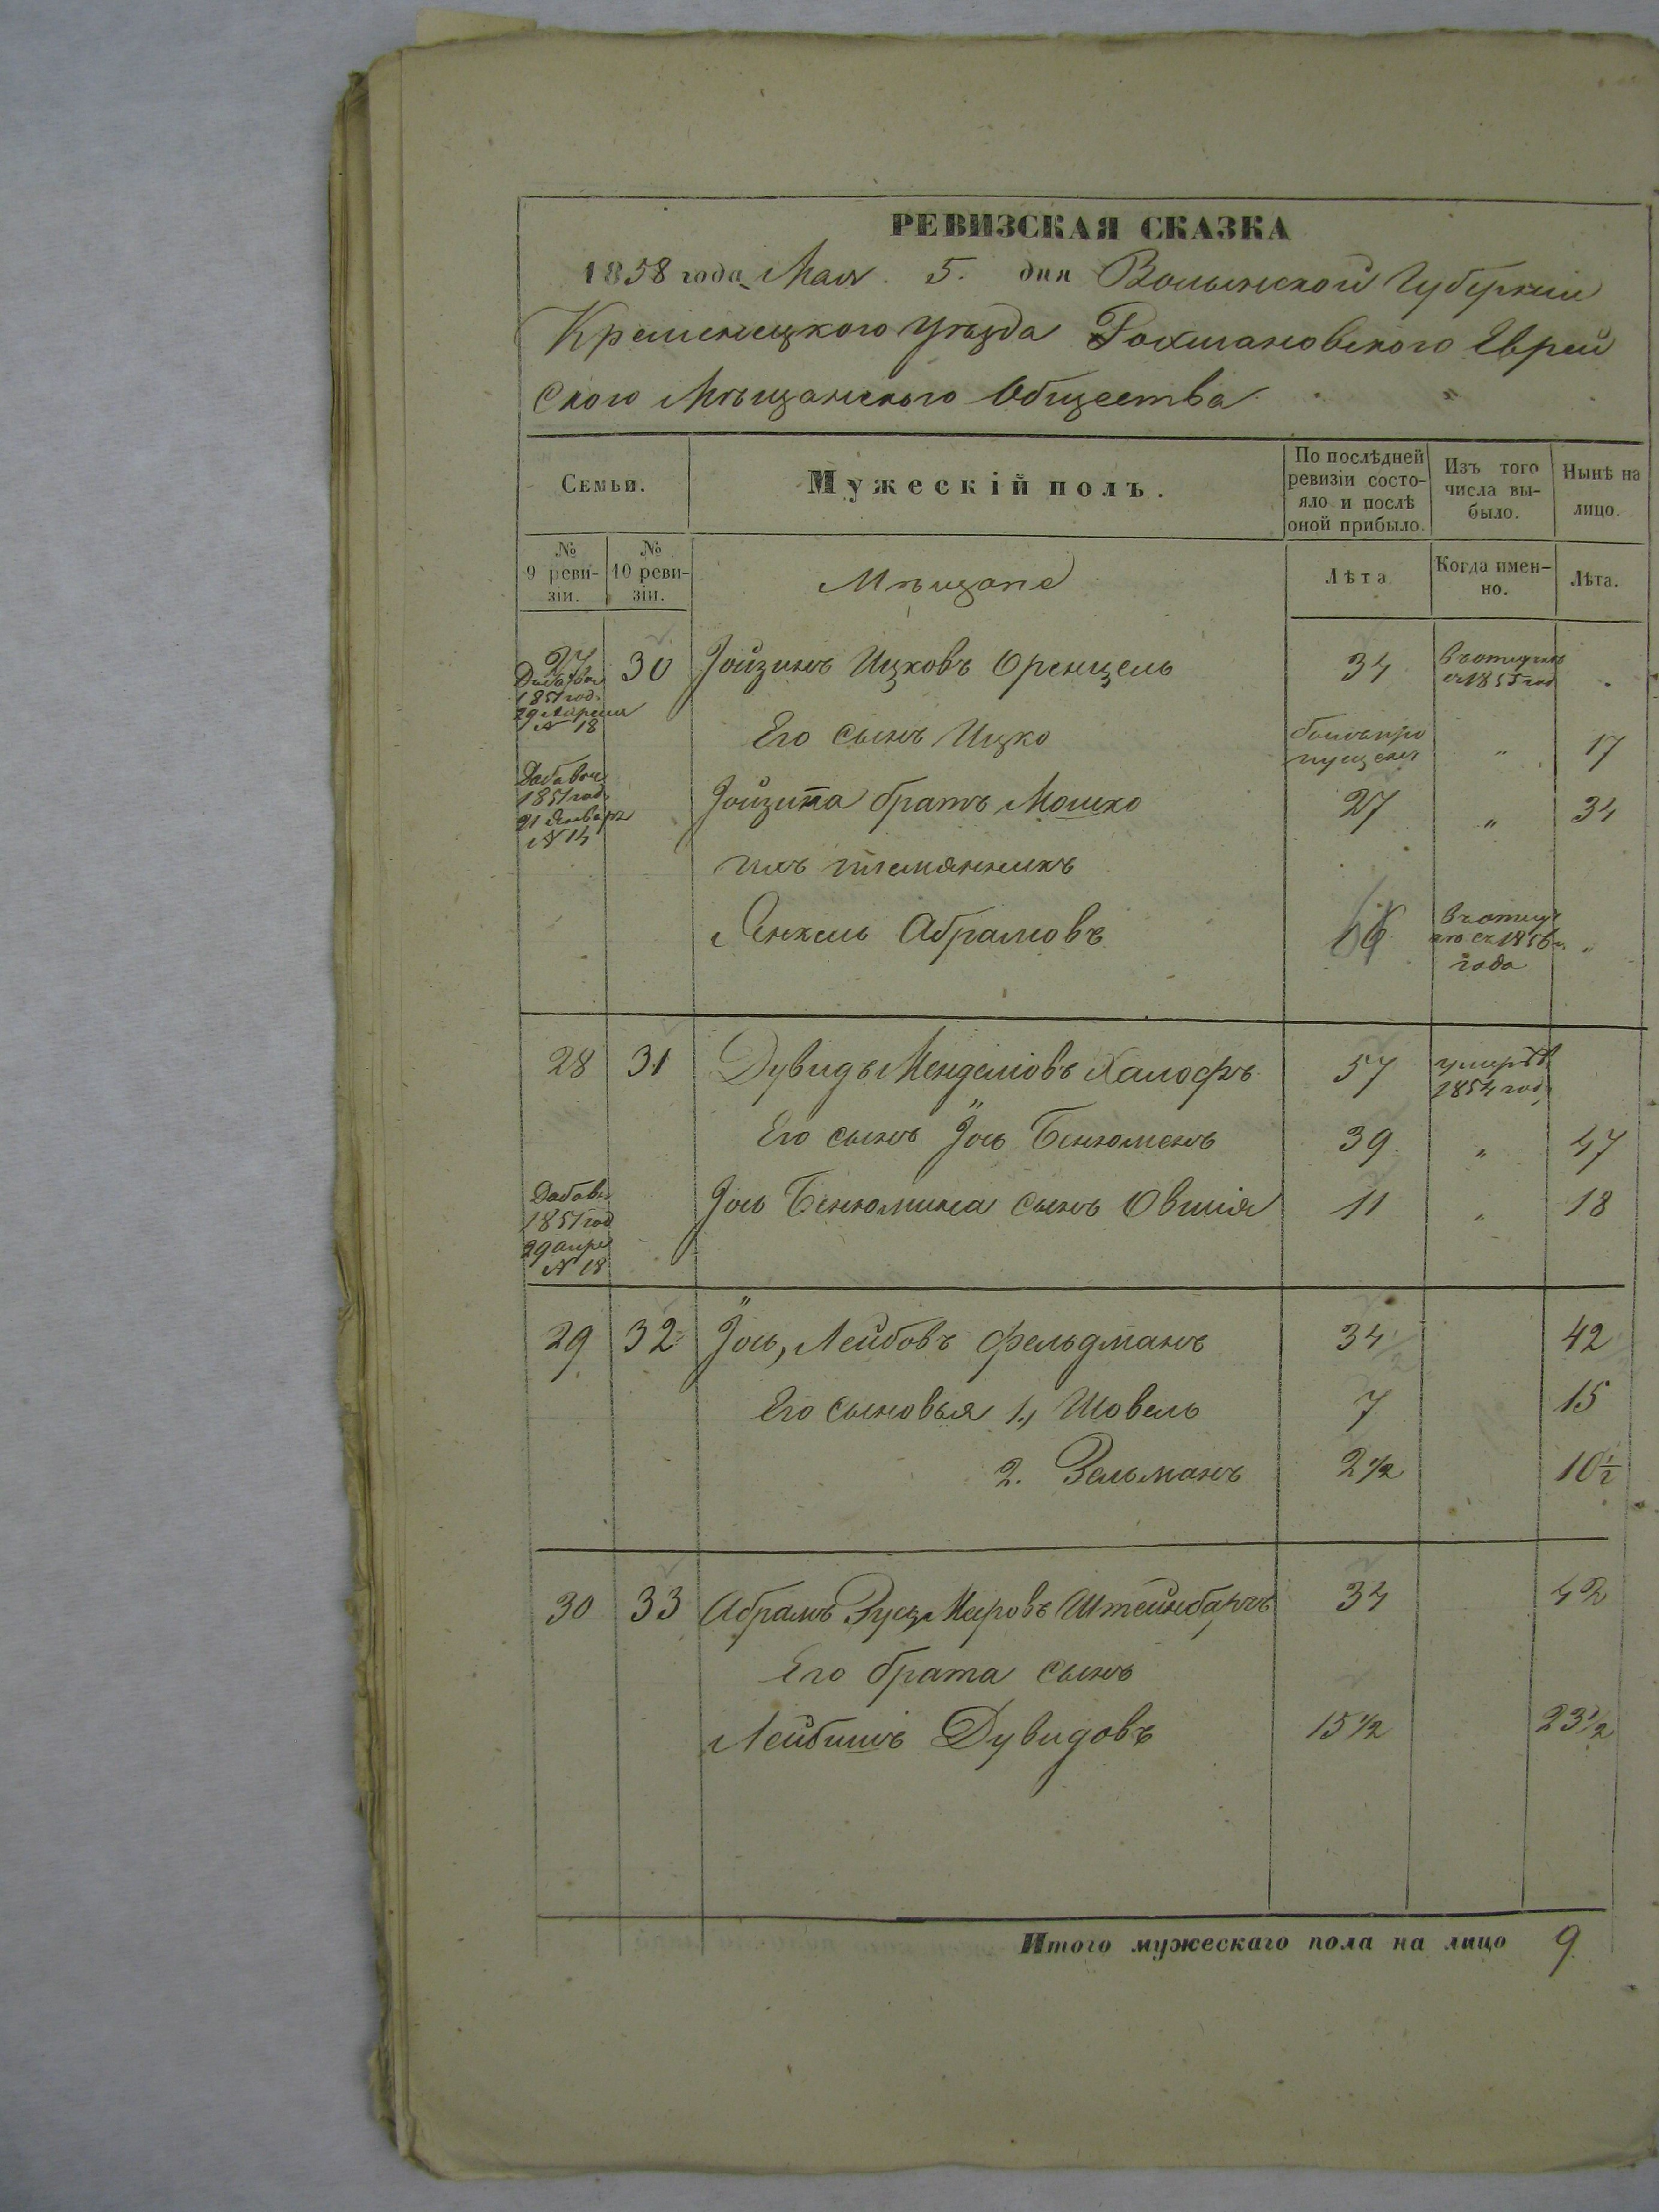 РЕВИЗСКАЯ СКАЗКА
1858 года Мая 5. дня Волынской Губерніи
Кременецкого Уѣзда Рохмановского Еврей
ского Мѣщанского Общества
Семьи.
Мужескій полъ.
По послѣдней ревизіи состояло и послѣ оной прибыло.
Изъ того числа выбыло.
Нынѣ на лицо.
№ 9 ревизіи.
№ 10 ревизіи.
Мѣщане
Лѣта
Когда именно.
Лѣта.
27 30 Іойзинъ Ицковъ Оренцель 34 въ отлуч съ 1855 год
1851 год.
29 Апреля
№ 18
Его сынъ Ицко былъ пропущенъ " 17
Добавоч
1851 год
21 Января
№ 14
Іойзина братъ Мошко 27 " 34
ихъ племянникъ
Янкель Абрамовъ 16 въ отлуч съ 1856 года "
28 31 Дувидъ Менделіовъ Халофъ 57 умеръ 1854 год
Его сынъ Іось Бенюменъ 39 " 47
Добавоч
1851 год
29 апре
№ 18
Іось Бенюмина сынъ Овшія 11 " 18
29 32 Іось, Лейбовъ Фельдманъ 34 42
Его сыновья 1, Шовель 7 15
2. Зельманъ 2 1/2 10 1/2
30 33 Абрамъ Зусь Меровъ Штейнбархъ 34 42
Его брата сынъ
Лейбишъ Дувидовъ 15 1/2 23 1/2
Итого мужескаго пола на лицо 9